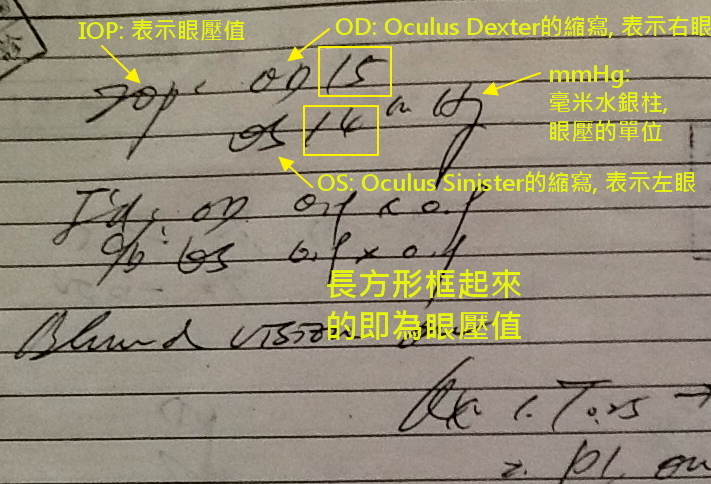 IOP: 表示眼壓值
OD: Oculus Dexter的縮寫, 表示右眼
Iop: OD 15
mmHg:
毫米水銀柱,
眼壓的單位
OS 14 Hg
OS: Oculus Sinister的縮寫, 表示左眼
OD 0.4 x 0.4
OS 0.4 x 0.4
長方形框起來
的即為眼壓值
Blurred vision
Rx 1. T 0.25 →
2. pl ou